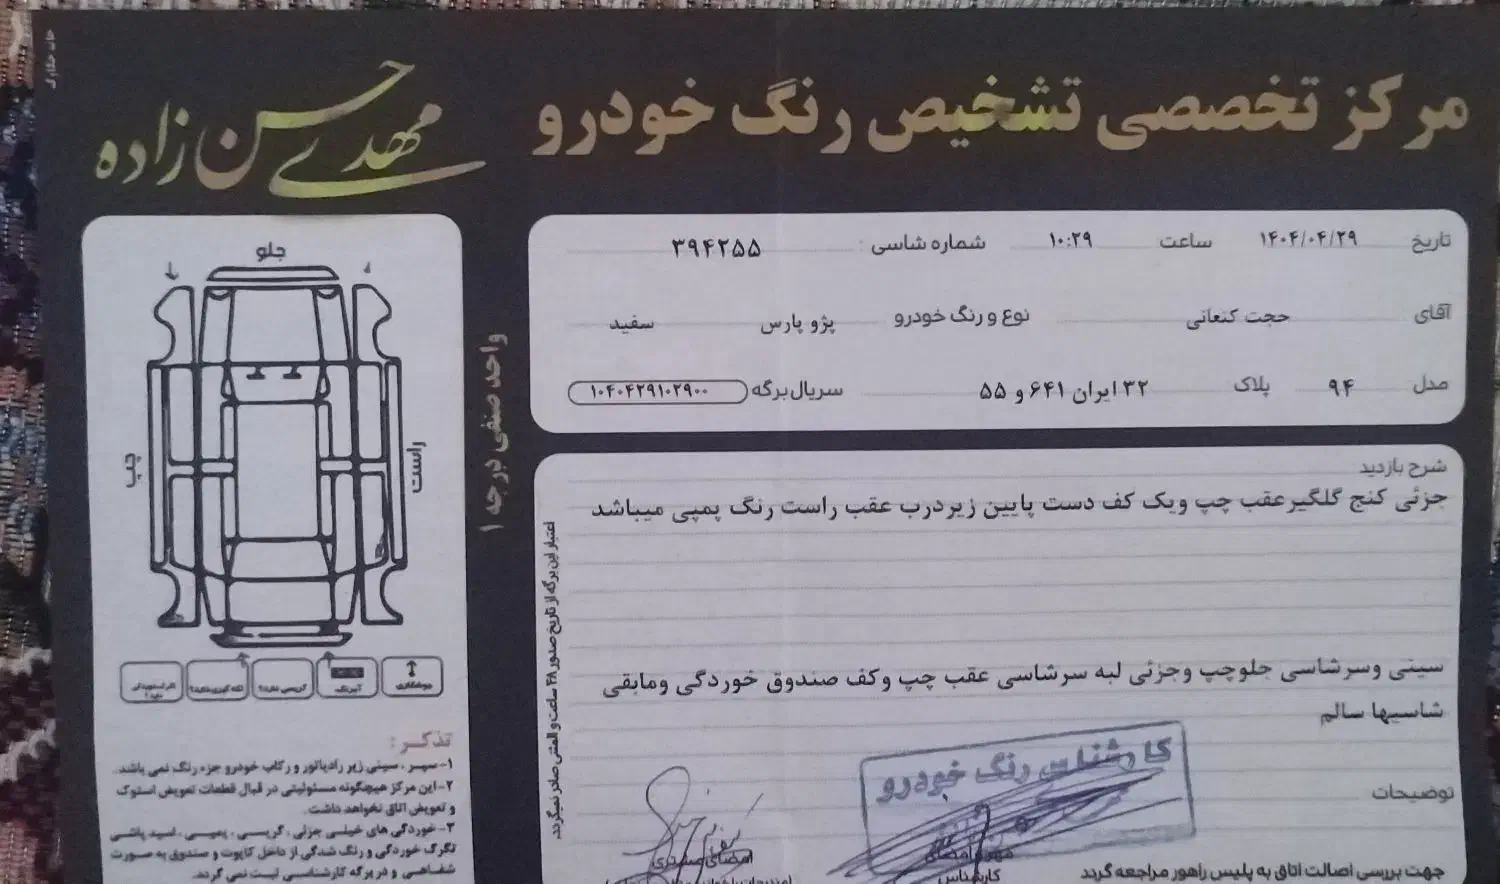 مرکز تخصصی تشخیص رنگ خودرو
مهدی حسن زاده
تاریخ ۱۴۰۴/۰۴/۲۹ ساعت ۱۰:۲۹ شماره شاسی : ۳۹۴۲۵۵
آقای حجت کنعانی نوع و رنگ خودرو پژو پارس سفید
مدل ۹۴ پلاک ۳۲ ایران ۶۴۱ و ۵۵ سریال برگه ۱۰۴۰۴۲۹۱۰۲۹۰۰
شرح بازدید
جزئی کنج گلگیرعقب چپ ویک کف دست پایین زیردرب عقب راست رنگ پمپی میباشد
سینی وسرشاسی جلوچپ وجزئی لبه سرشاسی عقب چپ وکف صندوق خوردگی ومابقی
شاسیها سالم
توضیحات
کارشناس رنگ خودرو
مهر و امضای
کارشناس
امضای مشتری
جهت بررسی اصالت اتاق به پلیس راهور مراجعه گردد
واحد صنفی درجه ۱
اعتبار این برگه از تاریخ صدور ۴۸ ساعت و المثنی صادر نمیگردد.
جلو
راست
چپ
تذکر:
۱- سپر ، سینی زیر رادیاتور و رکاب خودرو جزء رنگ نمی باشد.
۲- این مرکز هیچگونه مسئولیتی در قبال قطعات تعویض استوک
و تعویض اتاق نخواهد داشت.
۳- خوردگی های خیلی جزئی ، گریسی ، پمپی ، اسید پاشی
تگرگ خوردگی و رنگ شدگی از داخل کاپوت و صندوق به صورت
شفاهی و در برگه کارشناسی ثبت نمی گردد.